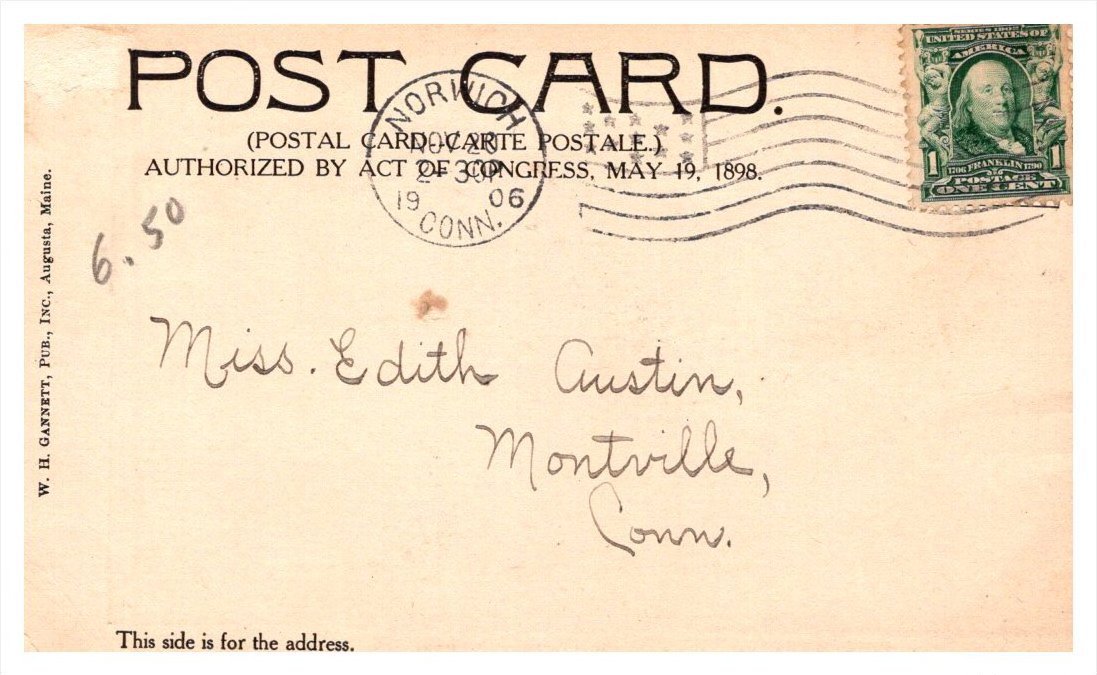 POST CARD.
(POSTAL CARD—CARTE POSTALE.)
AUTHORIZED BY ACT OF CONGRESS, MAY 19, 1898.
NORWICH
NOV 28
2-30P
19 06
CONN.
SERIES 1902
UNITED STATES OF
AMERICA
1 1
FRANKLIN
1706 1790
POSTAGE
ONE CENT
6.50
W. H. GANNETT, PUB., INC., Augusta, Maine.
Miss. Edith Austin,
Montville,
Conn.
This side is for the address.